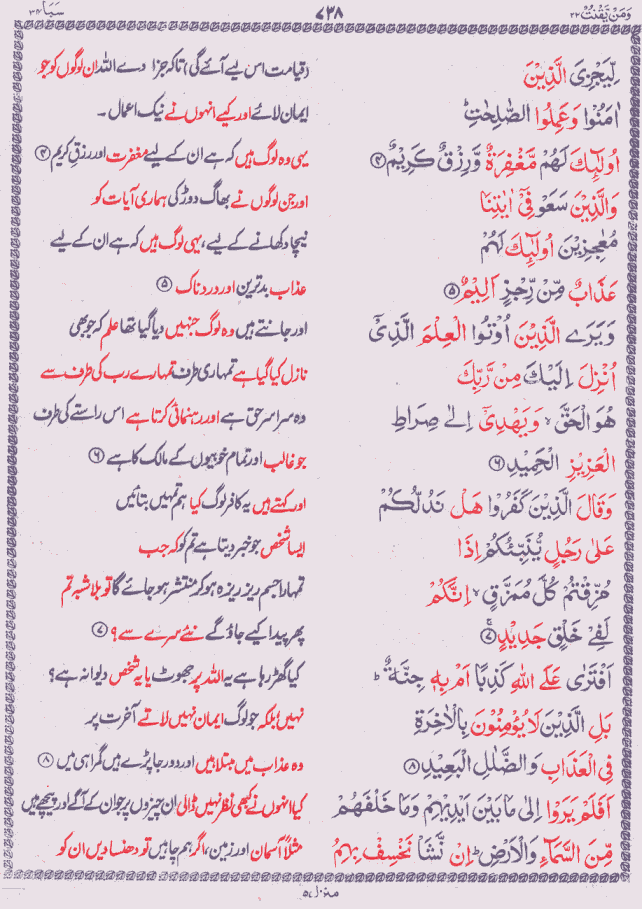 وَمَنْ يَّقْنُتْ ٢٢
٧٣٨
سَبَا ٣٤
لِّيَجْزِىَ الَّذِيْنَ
(قیامت اس لیے آئے گی) تاکہ جزا دے اللہ ان لوگوں کو جو
اٰمَنُوْا وَعَمِلُوا الصّٰلِحٰتِ ؕ
ایمان لائے اور کیے انہوں نے نیک اعمال ۔
اُولٰٓئِكَ لَهُمْ مَّغْفِرَةٌ وَّرِزْقٌ كَرِيْمٌ ④
یہی وہ لوگ ہیں کہ ہے ان کے لیے مغفرت اور رزقِ کریم ④
وَالَّذِيْنَ سَعَوْ فِىْٓ اٰيٰتِنَا
اور جن لوگوں نے بھاگ دوڑ کی ہماری آیات کو
مُعٰجِزِيْنَ اُولٰٓئِكَ لَهُمْ
نیچا دکھانے کے لیے، یہی لوگ ہیں کہ ہے ان کے لیے
عَذَابٌ مِّنْ رِّجْزٍ اَلِيْمٌ ⑤
عذاب بدترین اور دردناک ⑤
وَيَرَى الَّذِيْنَ اُوْتُوا الْعِلْمَ الَّذِىْٓ
اور جانتے ہیں وہ لوگ جنہیں دیا گیا تھا علم کہ جو بھی
اُنْزِلَ اِلَيْكَ مِنْ رَّبِّكَ
نازل کیا گیا ہے تمہاری طرف تمہارے رب کی طرف سے
هُوَ الْحَقَّ ۙ وَيَهْدِىْٓ اِلٰى صِرَاطِ
وہ سراسر حق ہے اور رہنمائی کرتا ہے اس راستے کی طرف
الْعَزِيْزِ الْحَمِيْدِ ⑥
جو غالب اور تمام خوبیوں کے مالک کا ہے ⑥
وَقَالَ الَّذِيْنَ كَفَرُوْا هَلْ نَدُلُّكُمْ
اور کہتے ہیں یہ کافر لوگ کیا ہم تمہیں بتائیں
عَلٰى رَجُلٍ يُّنَبِّئُكُمْ اِذَا
ایسا شخص جو خبر دیتا ہے تم کو کہ جب
مُزِّقْتُمْ كُلَّ مُمَزَّقٍ ۙ اِنَّكُمْ
تمہارا جسم ریزہ ریزہ ہو کر منتشر ہو جائے گا تو بلاشبہ تم
لَفِىْ خَلْقٍ جَدِيْدٍ ⑦
پھر پیدا کیے جاؤ گے نئے سرے سے؟ ⑦
اَفْتَرٰى عَلَى اللّٰهِ كَذِبًا اَمْ بِهٖ جِنَّةٌ ؕ
کیا گھڑ رہا ہے یہ اللہ پر جھوٹ یا یہ شخص دیوانہ ہے؟
بَلِ الَّذِيْنَ لَا يُؤْمِنُوْنَ بِالْاٰخِرَةِ
نہیں! بلکہ جو لوگ ایمان نہیں لاتے آخرت پر
فِى الْعَذَابِ وَالضَّلٰلِ الْبَعِيْدِ ⑧
وہ عذاب میں مبتلا ہیں اور دور جا پڑے ہیں گمراہی میں ⑧
اَفَلَمْ يَرَوْا اِلٰى مَا بَيْنَ اَيْدِيْهِمْ وَمَا خَلْفَهُمْ
کیا انہوں نے کبھی نظر نہیں ڈالی ان چیزوں پر جو ان کے آگے اور پیچھے ہیں
مِّنَ السَّمَآءِ وَالْاَرْضِ ؕ اِنْ نَّشَاْ نَخْسِفْ بِهِمُ
مثلاً آسمان اور زمین، اگر ہم چاہیں تو دھنسا دیں ان کو
منزل ٥